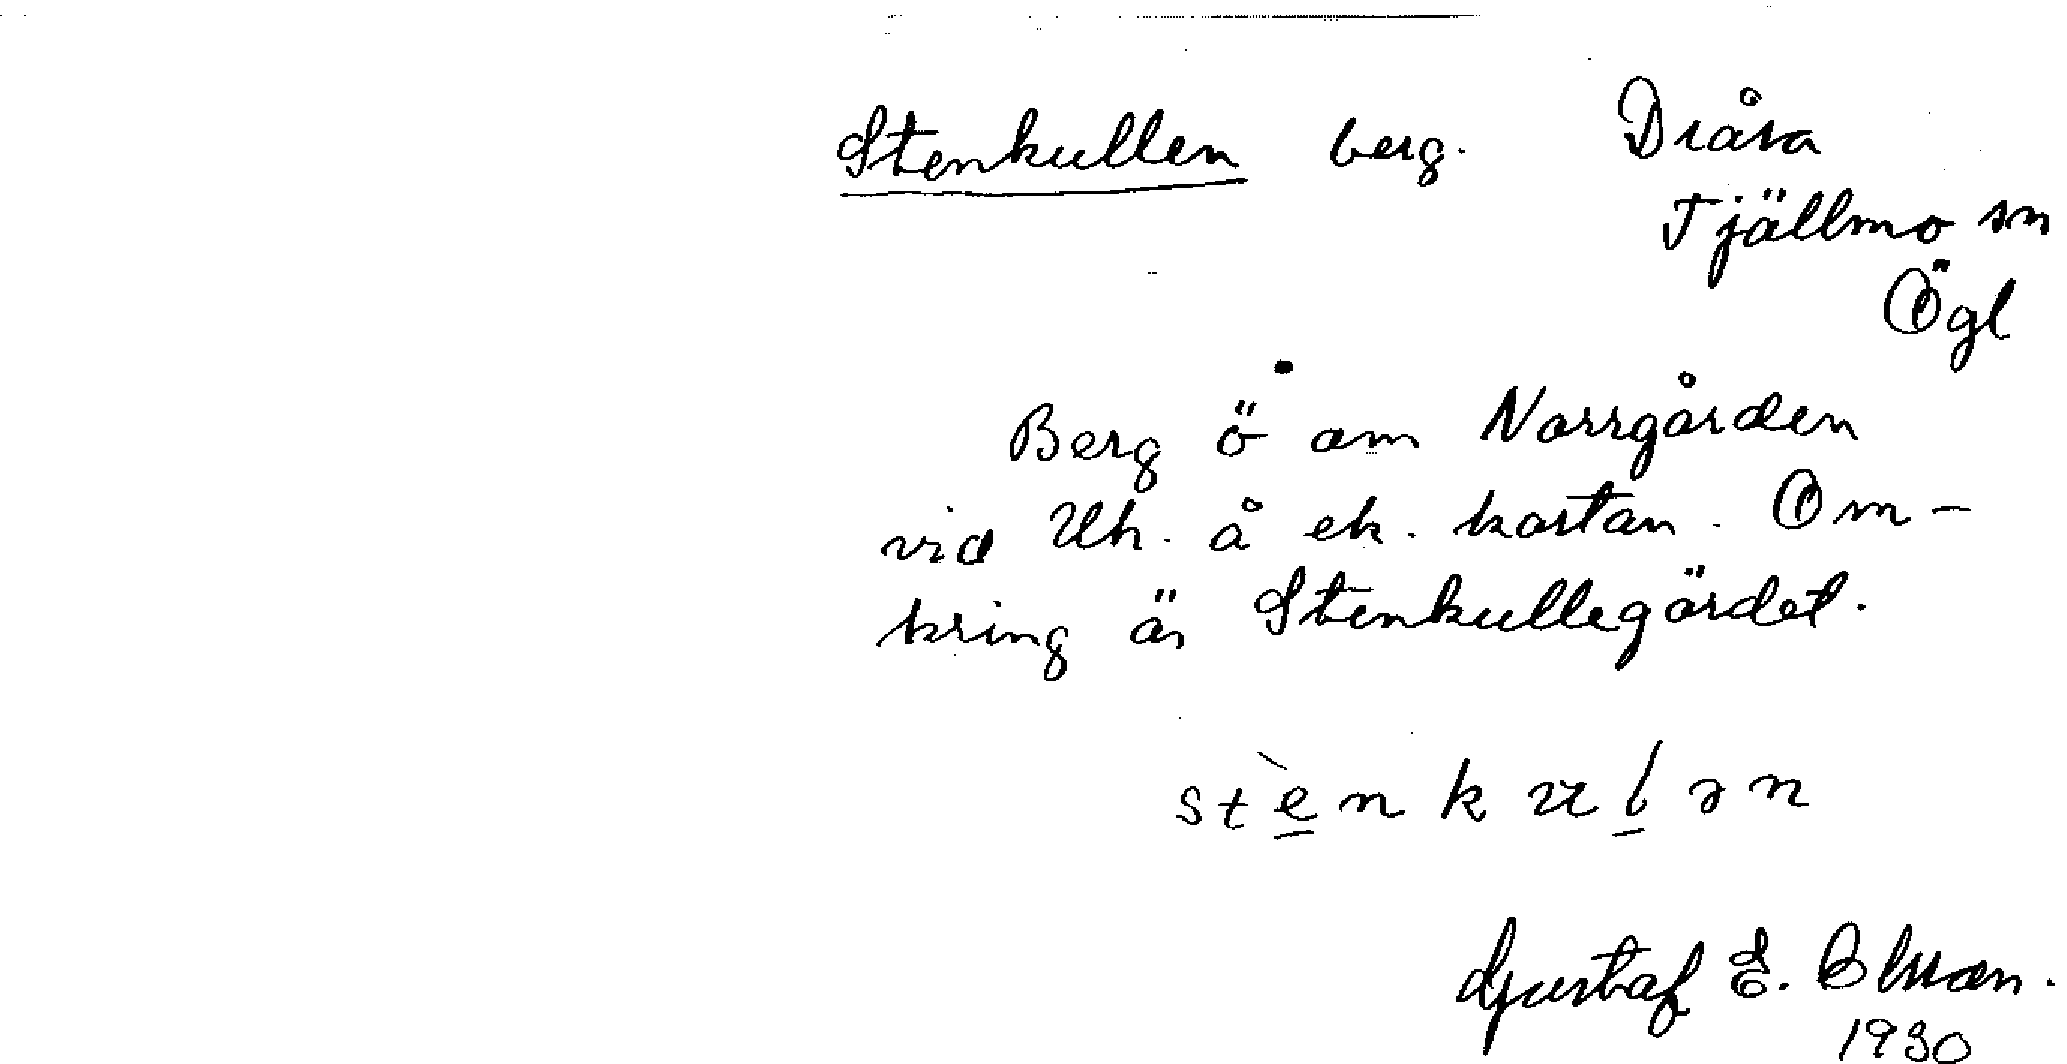 Stenkullen berg. Dråva
Tjällmo sn
Ögl
Berg ö om Norrgården
vid Uh. å ek. kartan. Om-
kring är Stenkullegärdet.
stènkulən
Gustaf E.
1930